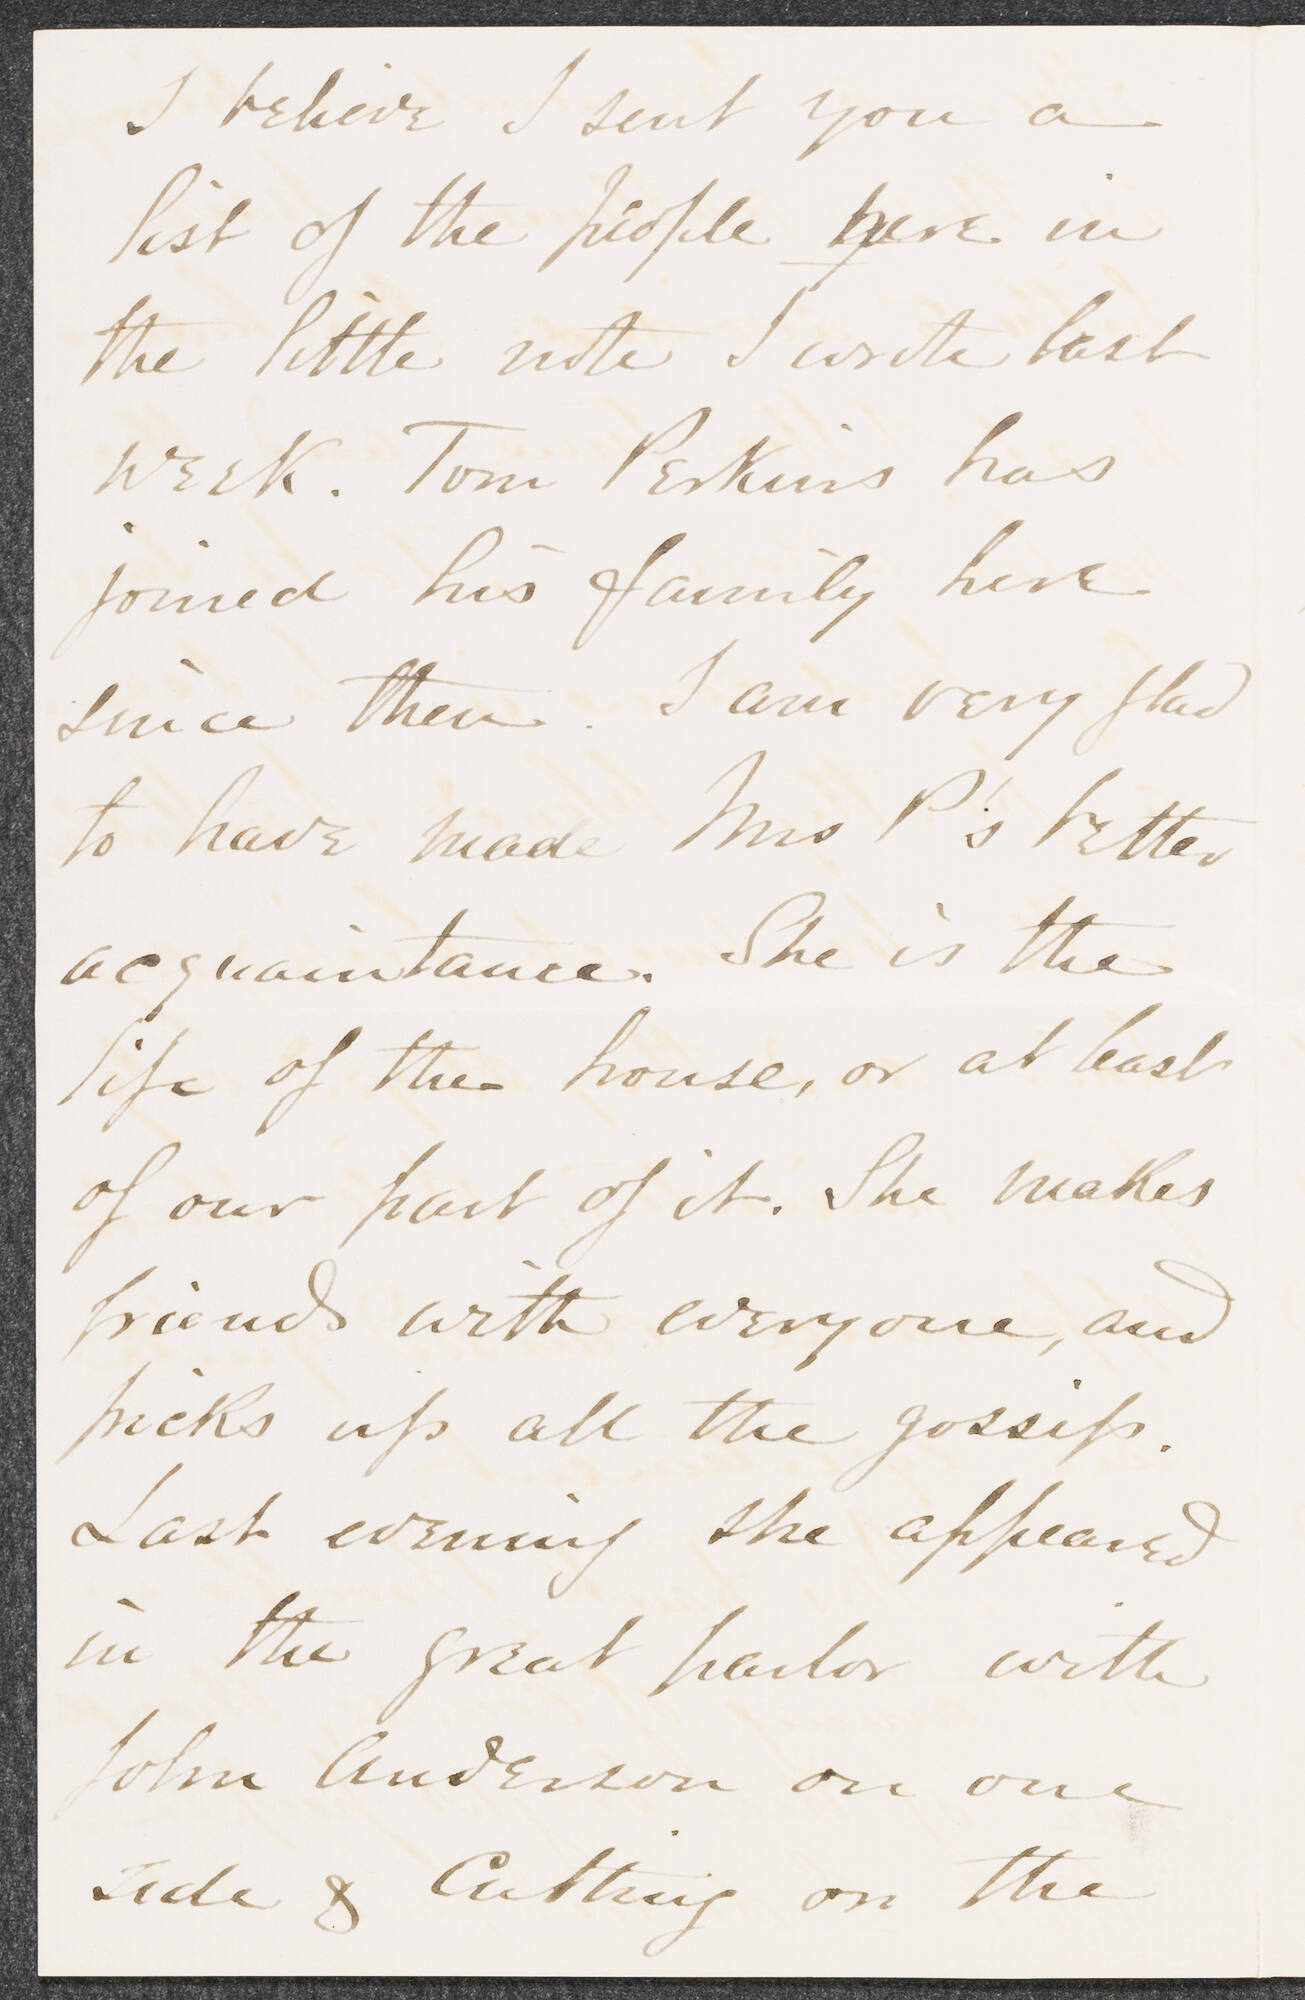 I believe I sent you a
list of the people here in
the little note I wrote last
week. Tom Perkins has
joined his family here
since then. I am very glad
to have made Mrs P's better
acquaintance. She is the
life of the house, or at least
of our part of it. She makes
friends with everyone, and
picks up all the gossip.
Last evening she appeared
in the great parlor with
John Anderson on one
side & Cutting on the